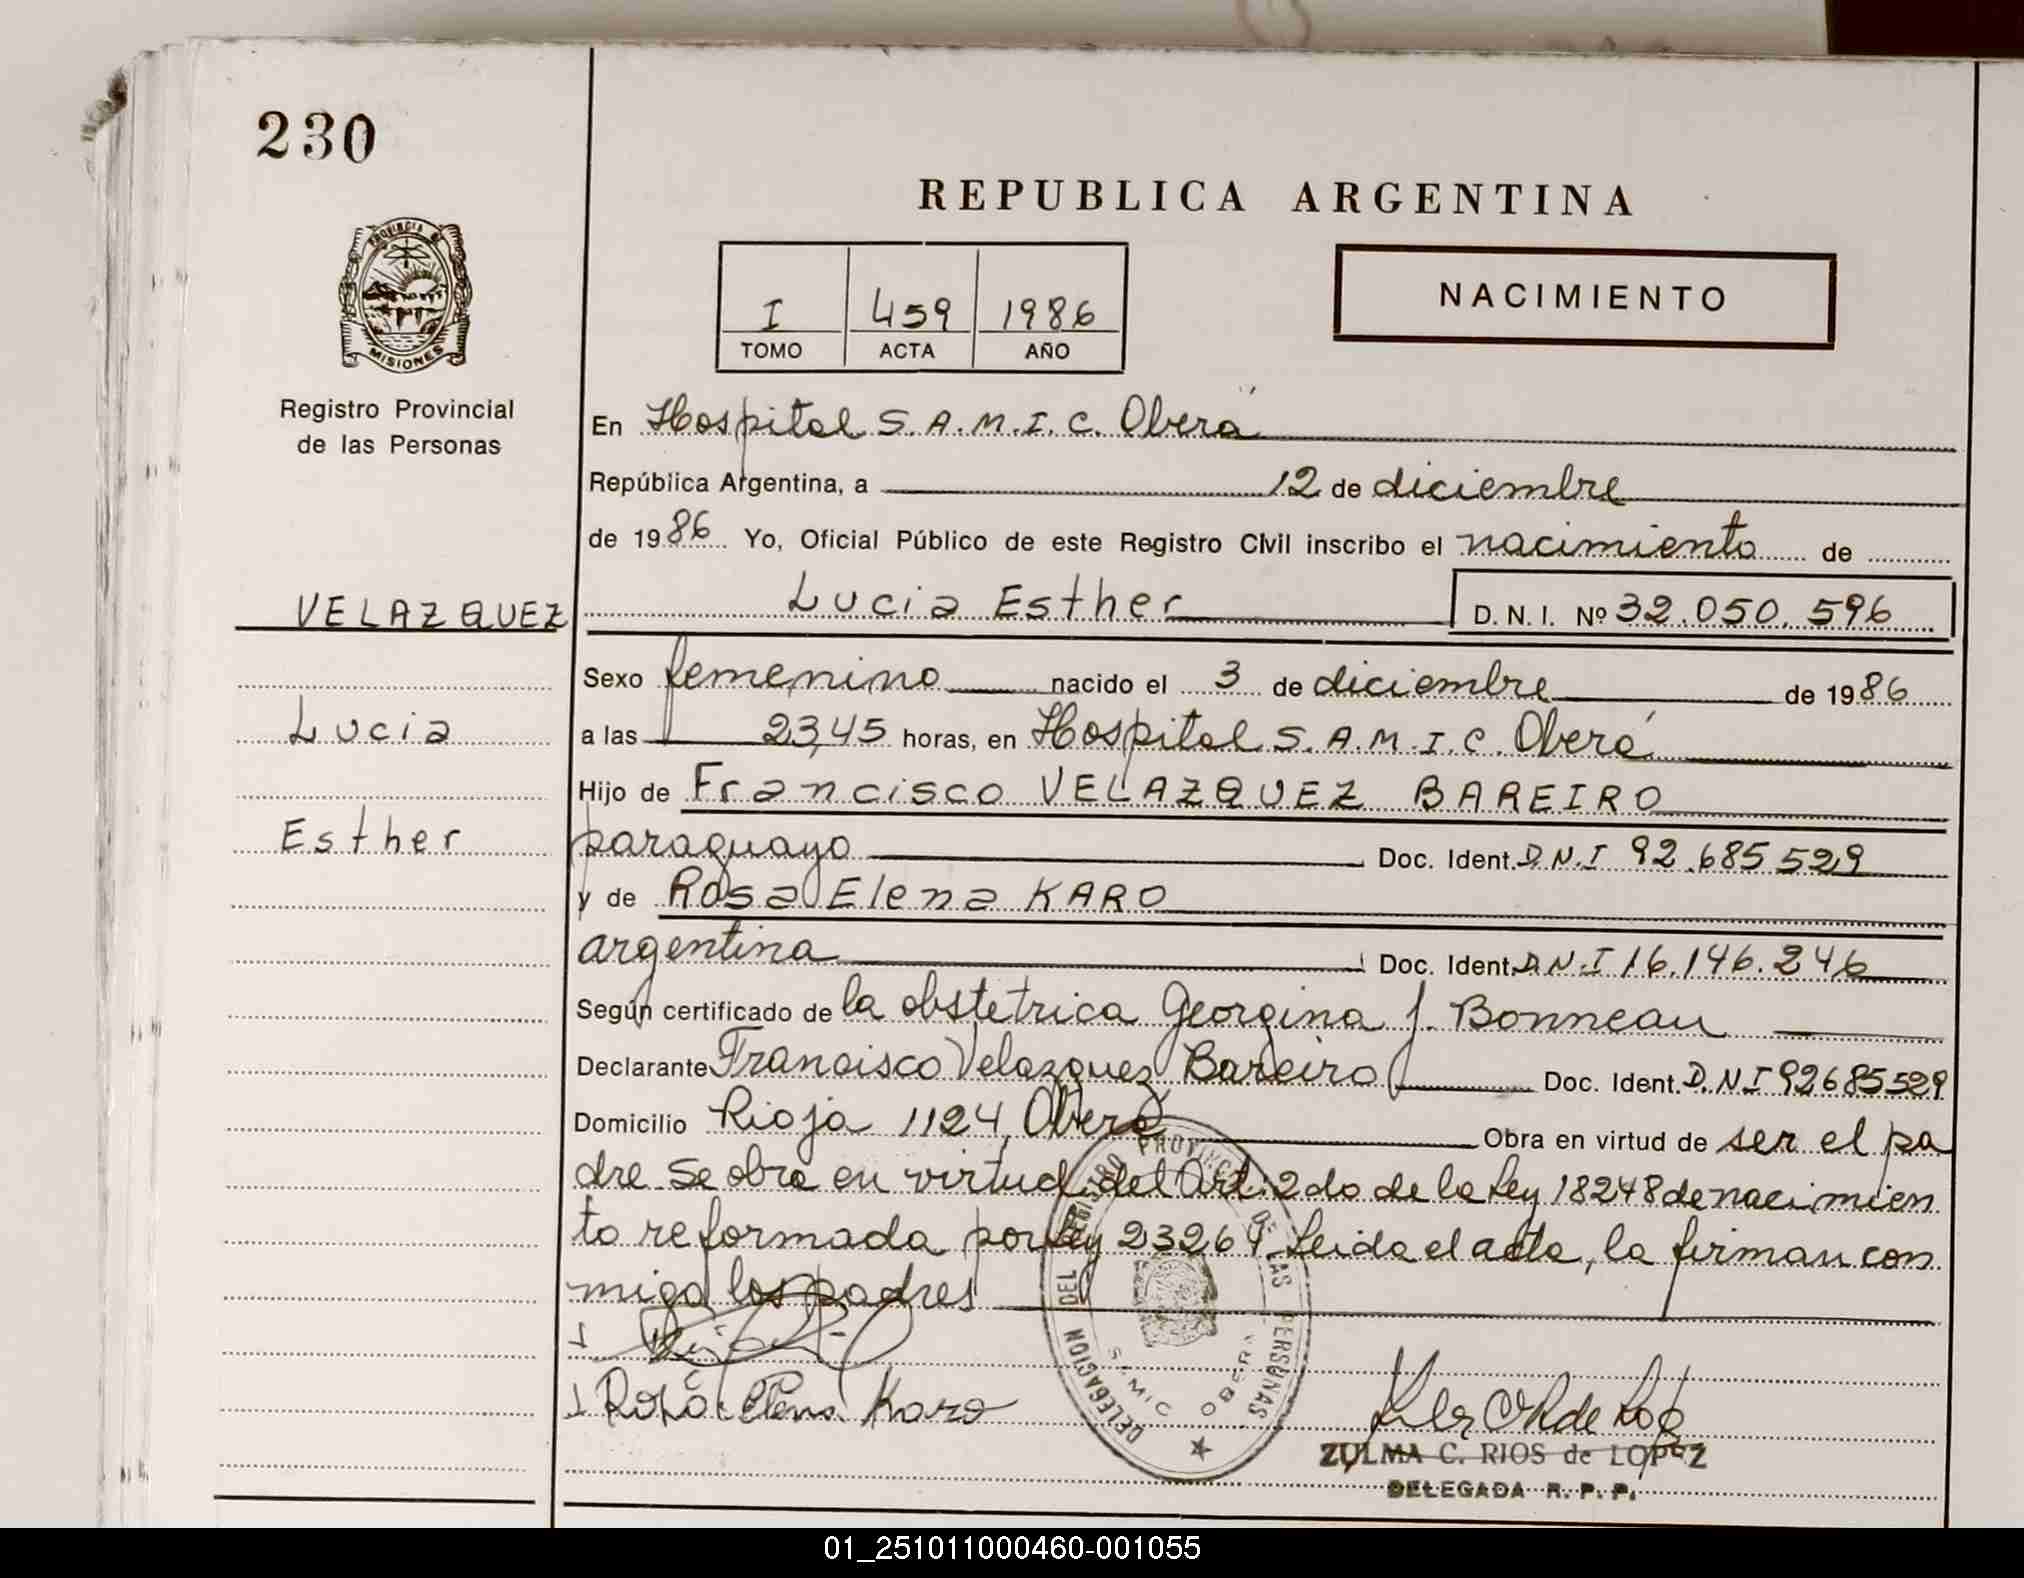 230
REPUBLICA ARGENTINA
PROVINCIA DE
MISIONES
I 459 1986
TOMO ACTA AÑO
NACIMIENTO
Registro Provincial
de las Personas
En Hospital S.A.M.I.C. Oberá
República Argentina, a 12 de diciembre
de 1986 Yo, Oficial Público de este Registro Civil inscribo el nacimiento de
VELAZQUEZ
Lucia Esther D. N. I. Nº 32.050.596
Sexo femenino nacido el 3 de diciembre de 1986
Lucia
a las 23,45 horas, en Hospital S.A.M.I.C. Oberá
Hijo de Francisco VELAZQUEZ BAREIRO
Esther
paraguayo Doc. Ident. D.N.I 92.685529
y de Rosa Elena KARO
argentina Doc. Ident. D.N.I 16.146.246
Según certificado de la obstetrica Georgina J. Bonneau
Declarante Francisco Velazquez Bareiro Doc. Ident. D.N I 92685529
Domicilio Rioja 1124, Oberá Obra en virtud de ser el pa
dre. Se obra en virtud del Art. 2do de la Ley 18248 de nacimien
to reformada por Ley 23264 Leida el acta, la firman con
migo los padres
Rosa Elena Karo
DELEGACION DEL REGISTRO PROVINCIAL DE LAS PERSONAS
SAMIC OBERA
ZULMA C. RIOS de LOPEZ
DELEGADA R. P. P.
01_251011000460-001055